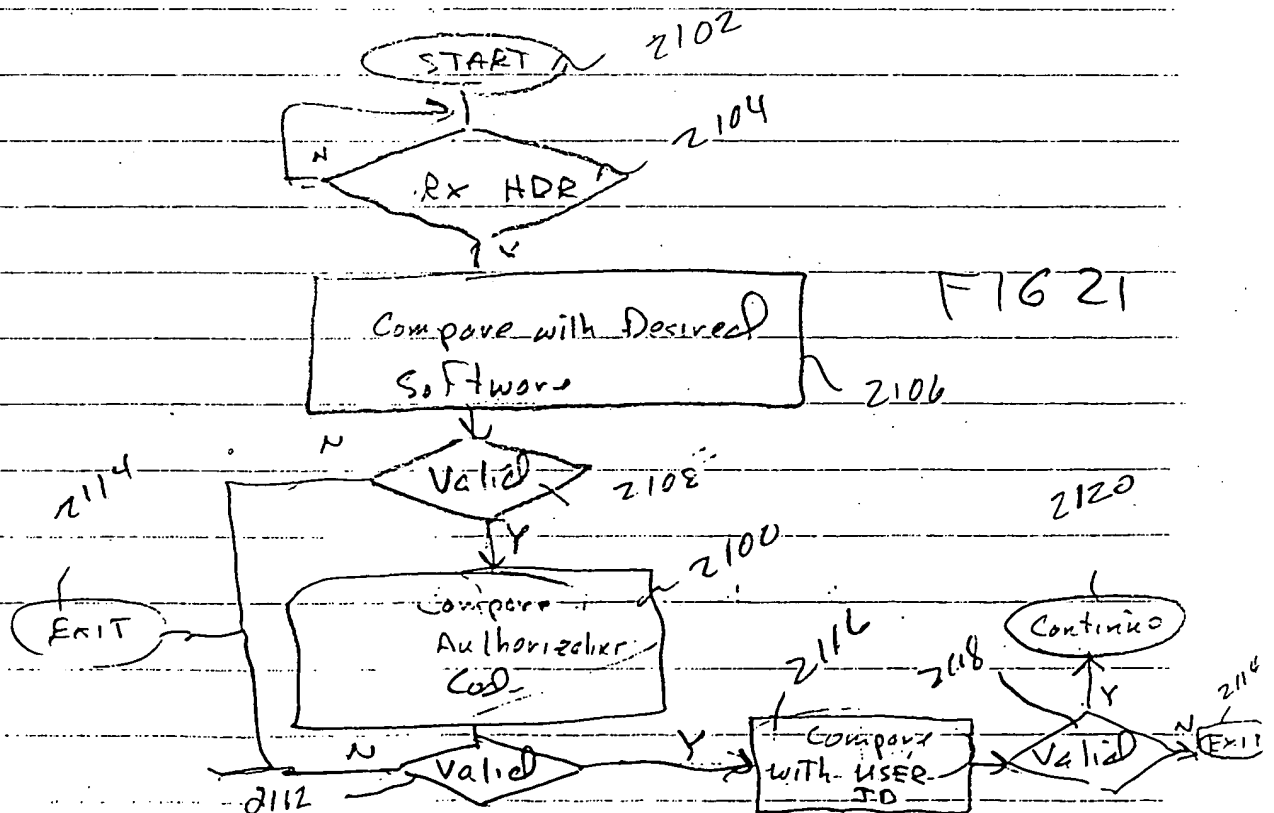 START
2102
N
2104
Rx HDR
Y
FIG 21
Compare with Desired
Software
2106
N
Valid
2108
2114
Y
2100
2120
EXIT
Compare
Authorization
Continue
2116
2118
Y
2114
N
Valid
Y
Compare
with USER
ID
Valid
N
EXIT
2112